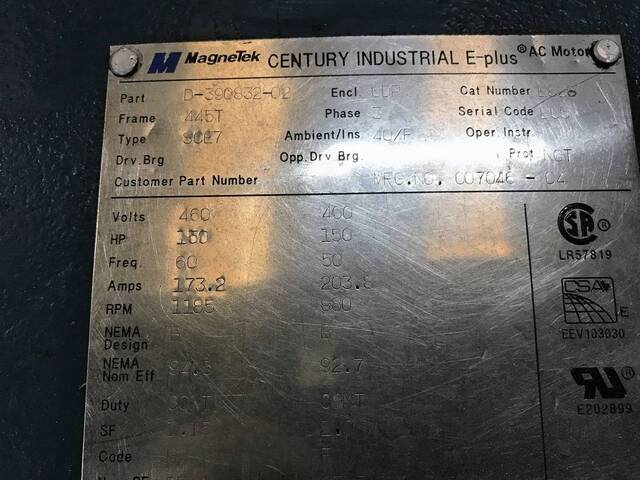 MagneTek CENTURY INDUSTRIAL E-plus® AC Motor
Part D-390832-02 Encl. Cat Number
Frame 445T Phase 3 Serial Code
Type SCE7 Ambient/Ins 40/F Oper. Instr.
Drv. Brg Opp. Drv Brg. Prot NOT
Customer Part Number MFG.NO. 007046 - 04
Volts 460 400
HP 150 150
Freq. 60 50
Amps 173.2 203.8
RPM 1185
NEMA Design
NEMA Nom Eff 92.7
Duty CONT CONT
SF
Code F
SA ®
LR57819
CSA E
EEV103030
RU ®
E202899